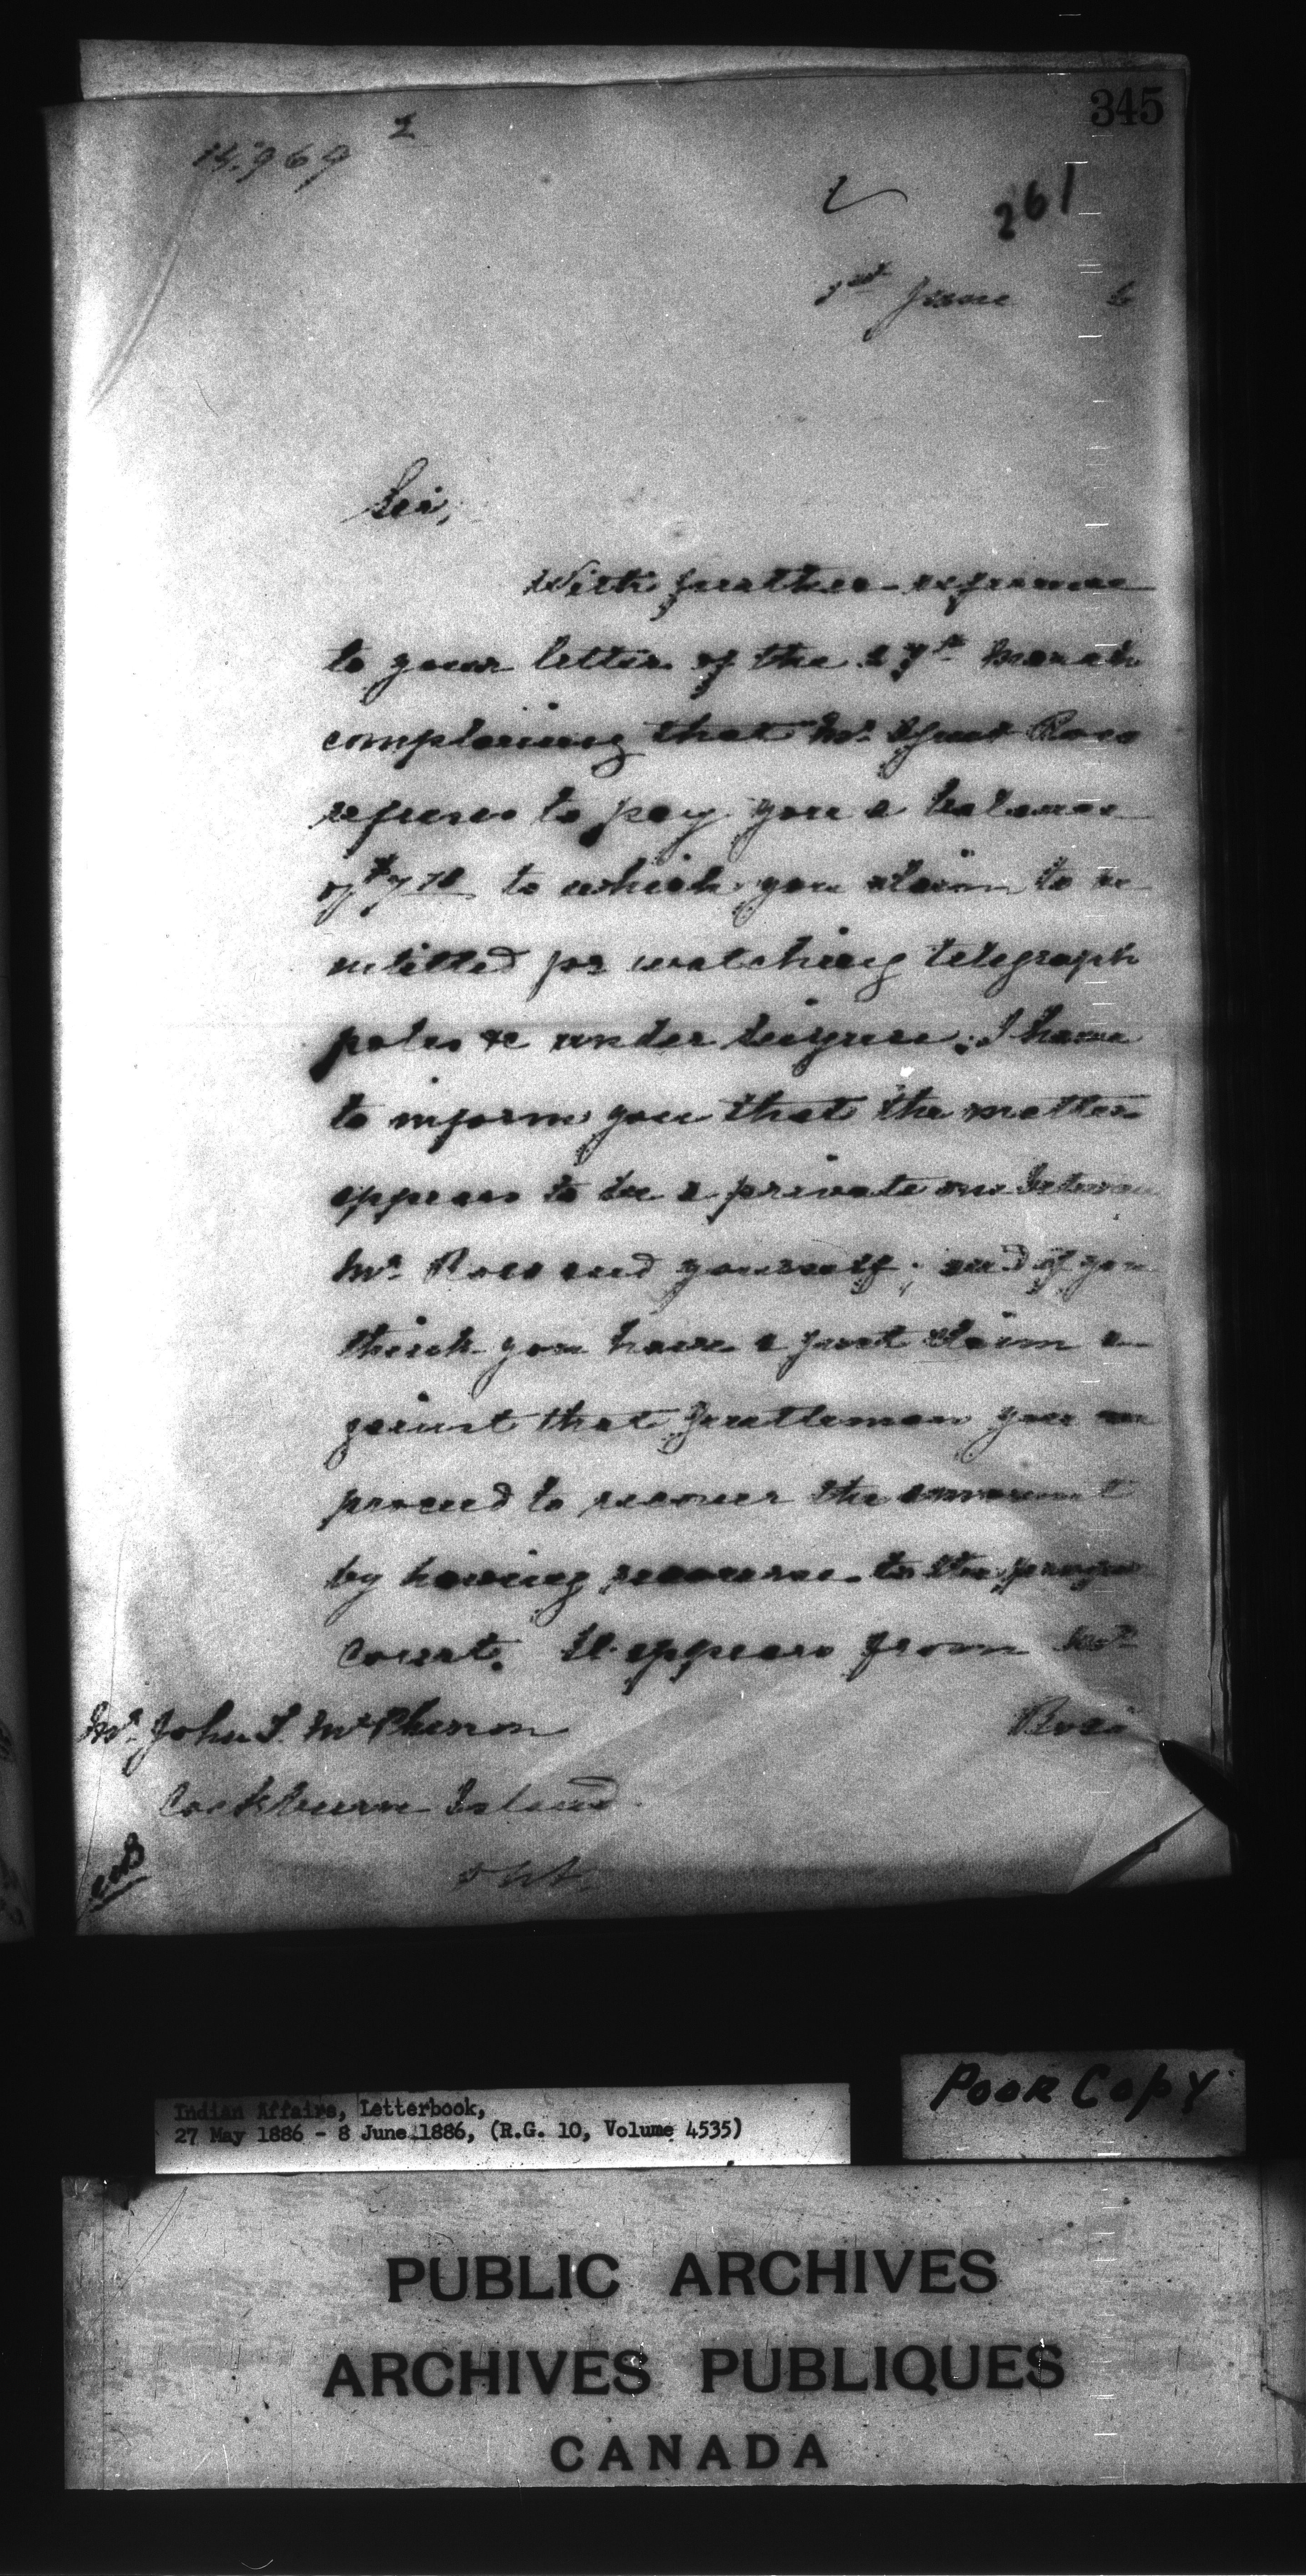 345
14,969
261
1st June 6
Sir,
With further reference
to your letter of the 27th March
complaining that Mr. Ross
refuses to pay you a balance
of $ to which you claim to be
entitled for watching telegraph
poles &c under seizure; I have
to inform you that the matter
appears to be a private one between
Mr. Ross and yourself; and if you
think you have a just claim a-
gainst that gentleman you can
proceed to recover the amount
by having recourse to the proper
court. It appears from Mr.
Mr. John S. McPherson Ross
Cockburn Island
Ont.
Indian Affairs, Letterbook,
27 May 1886 - 8 June 1886, (R.G. 10, Volume 4535)
Poor Copy
PUBLIC ARCHIVES
ARCHIVES PUBLIQUES
CANADA